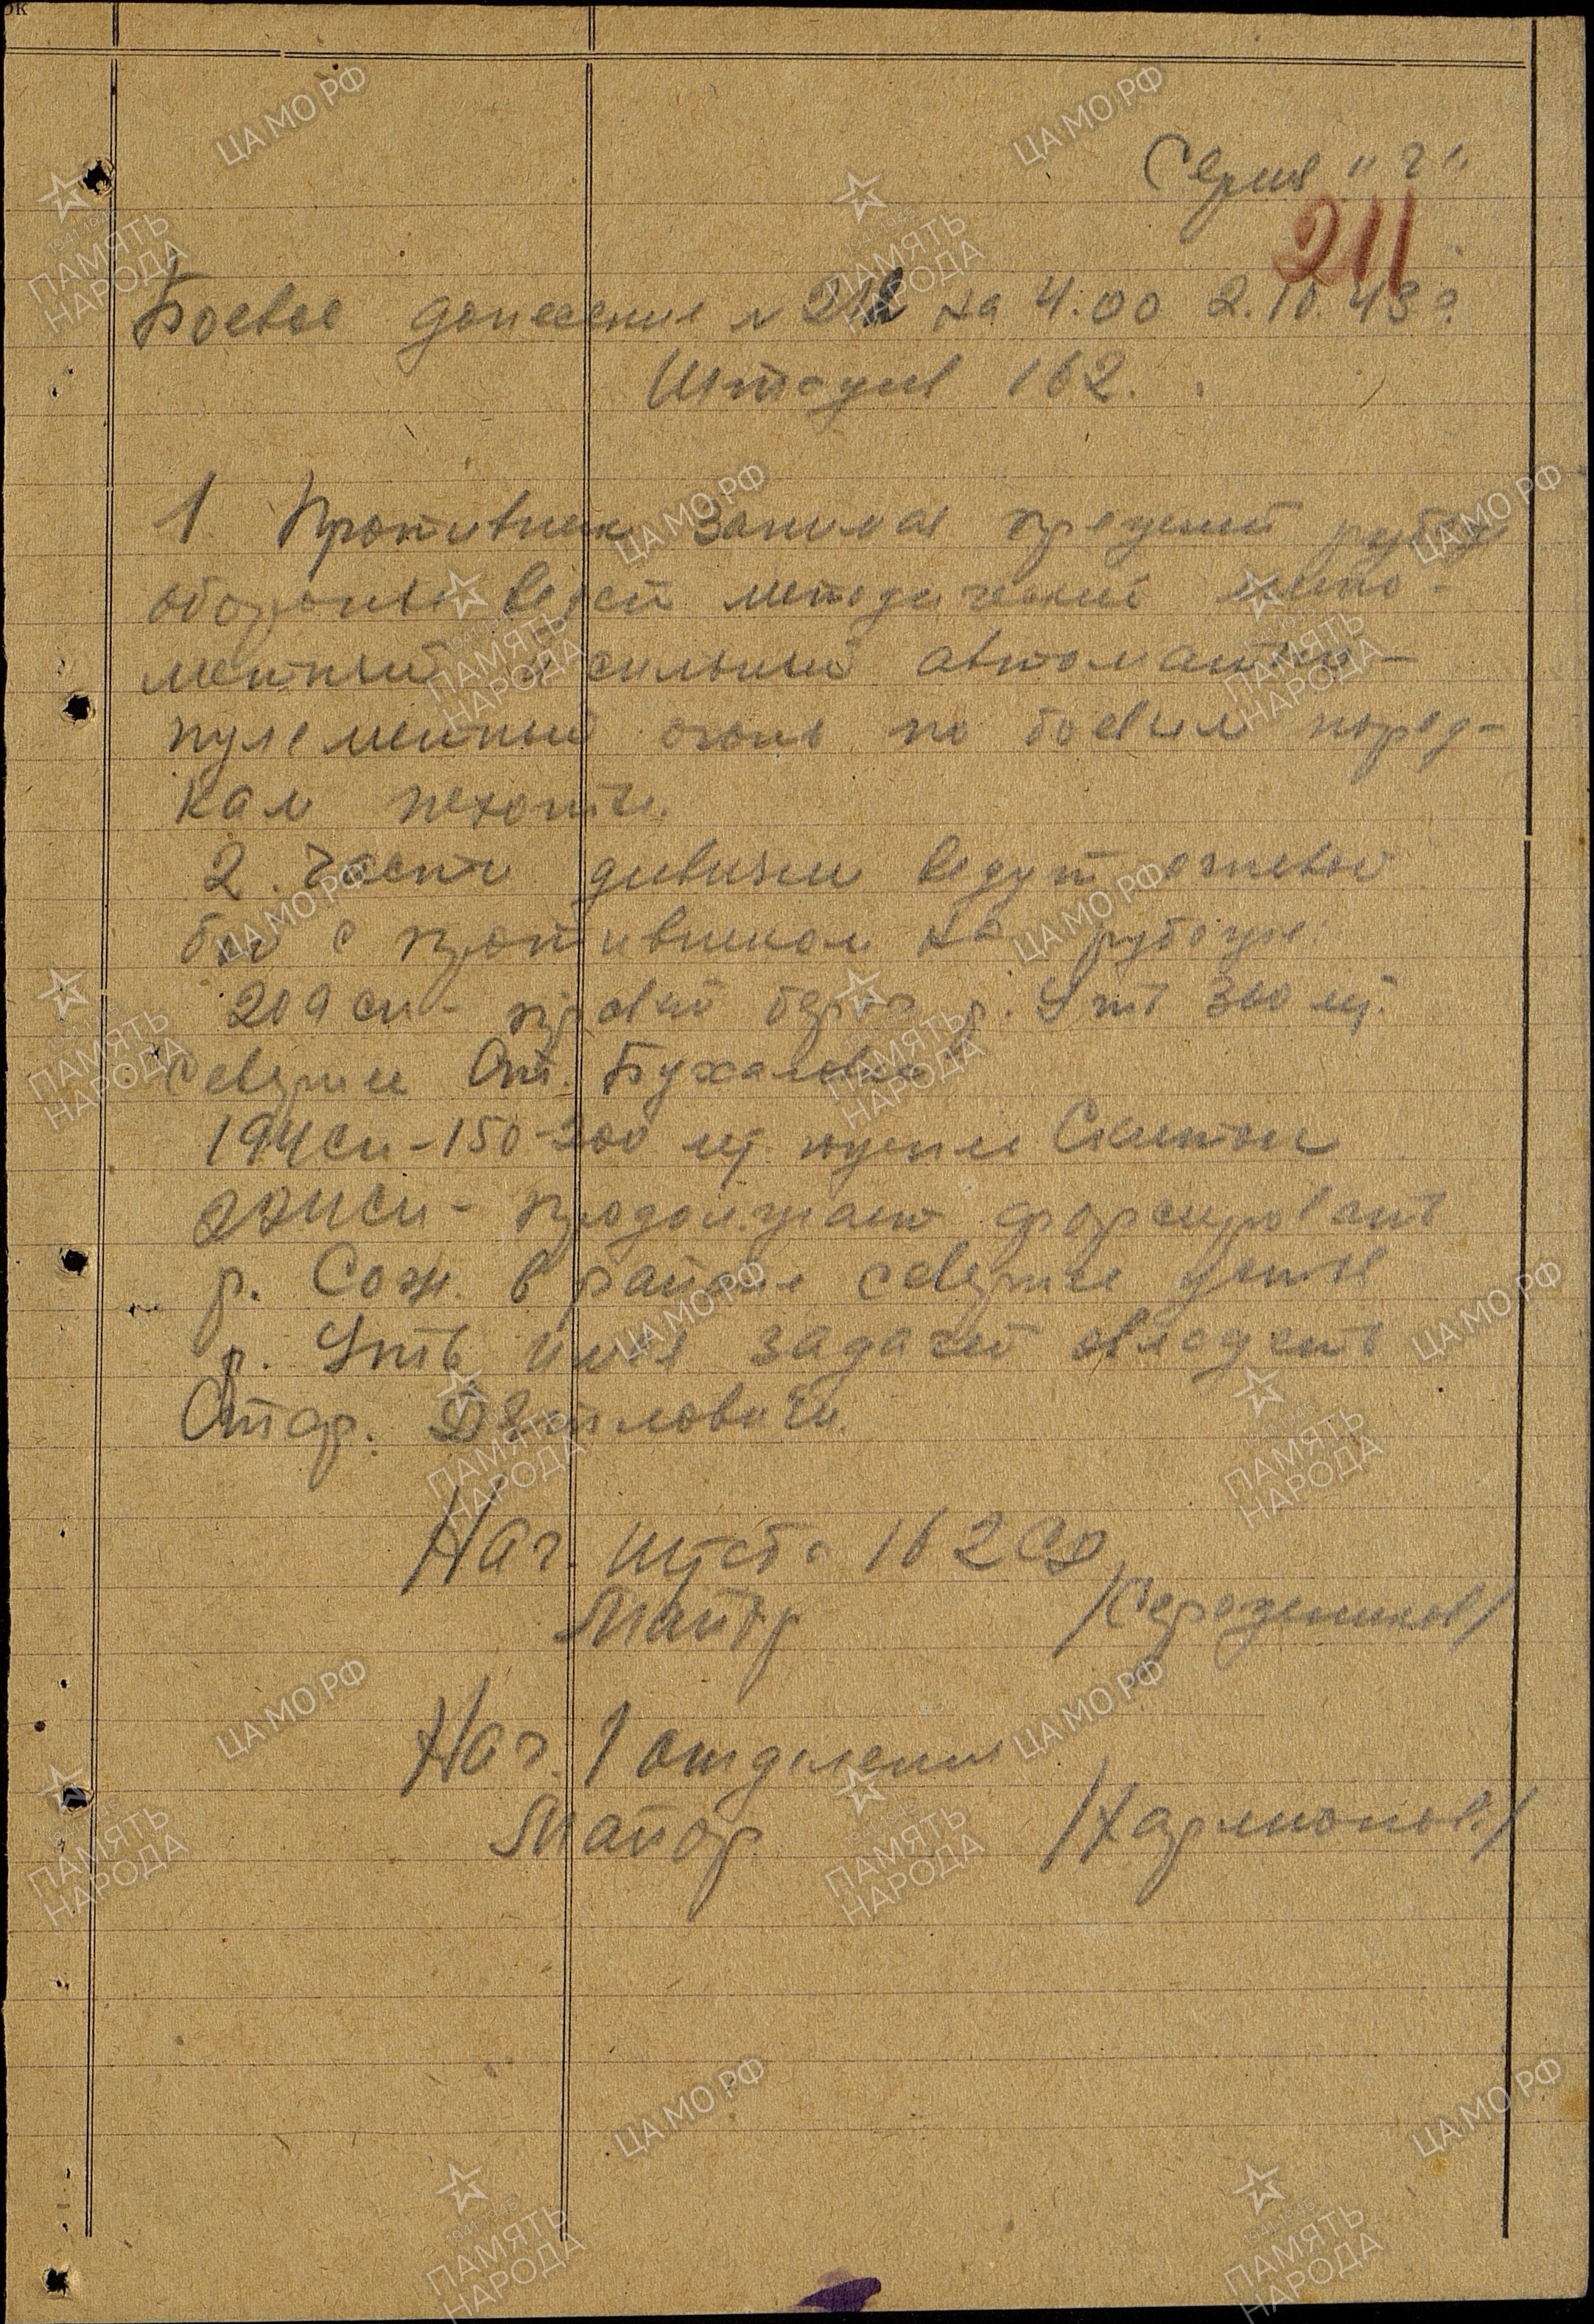 Серия "Г"
211
Боевое донесение № 212 на 4.00 2.10.43 г.
Штадив 162.
1 Противник занимая прежний рубеж
обороны ведет методический мино-
метный и сильный автоматно-
пулеметный огонь по боевым поряд-
кам пехоты.
2. Части дивизии ведут огневой
бой с противником на рубеже:
209 сп - правый берег р. Уть 300 мт.
севернее Ст. Бухаловка
194 сп - 150-200 мт. южнее Скиток
224 сп - продолжает форсировать
р. Сож. в районе севернее устья
р. Уть имея задачей овладеть
Стар. Дятловичи.
Нач. штаба 162 сд
Майор
Нач. 1 отделения
Майор /Хармонов/